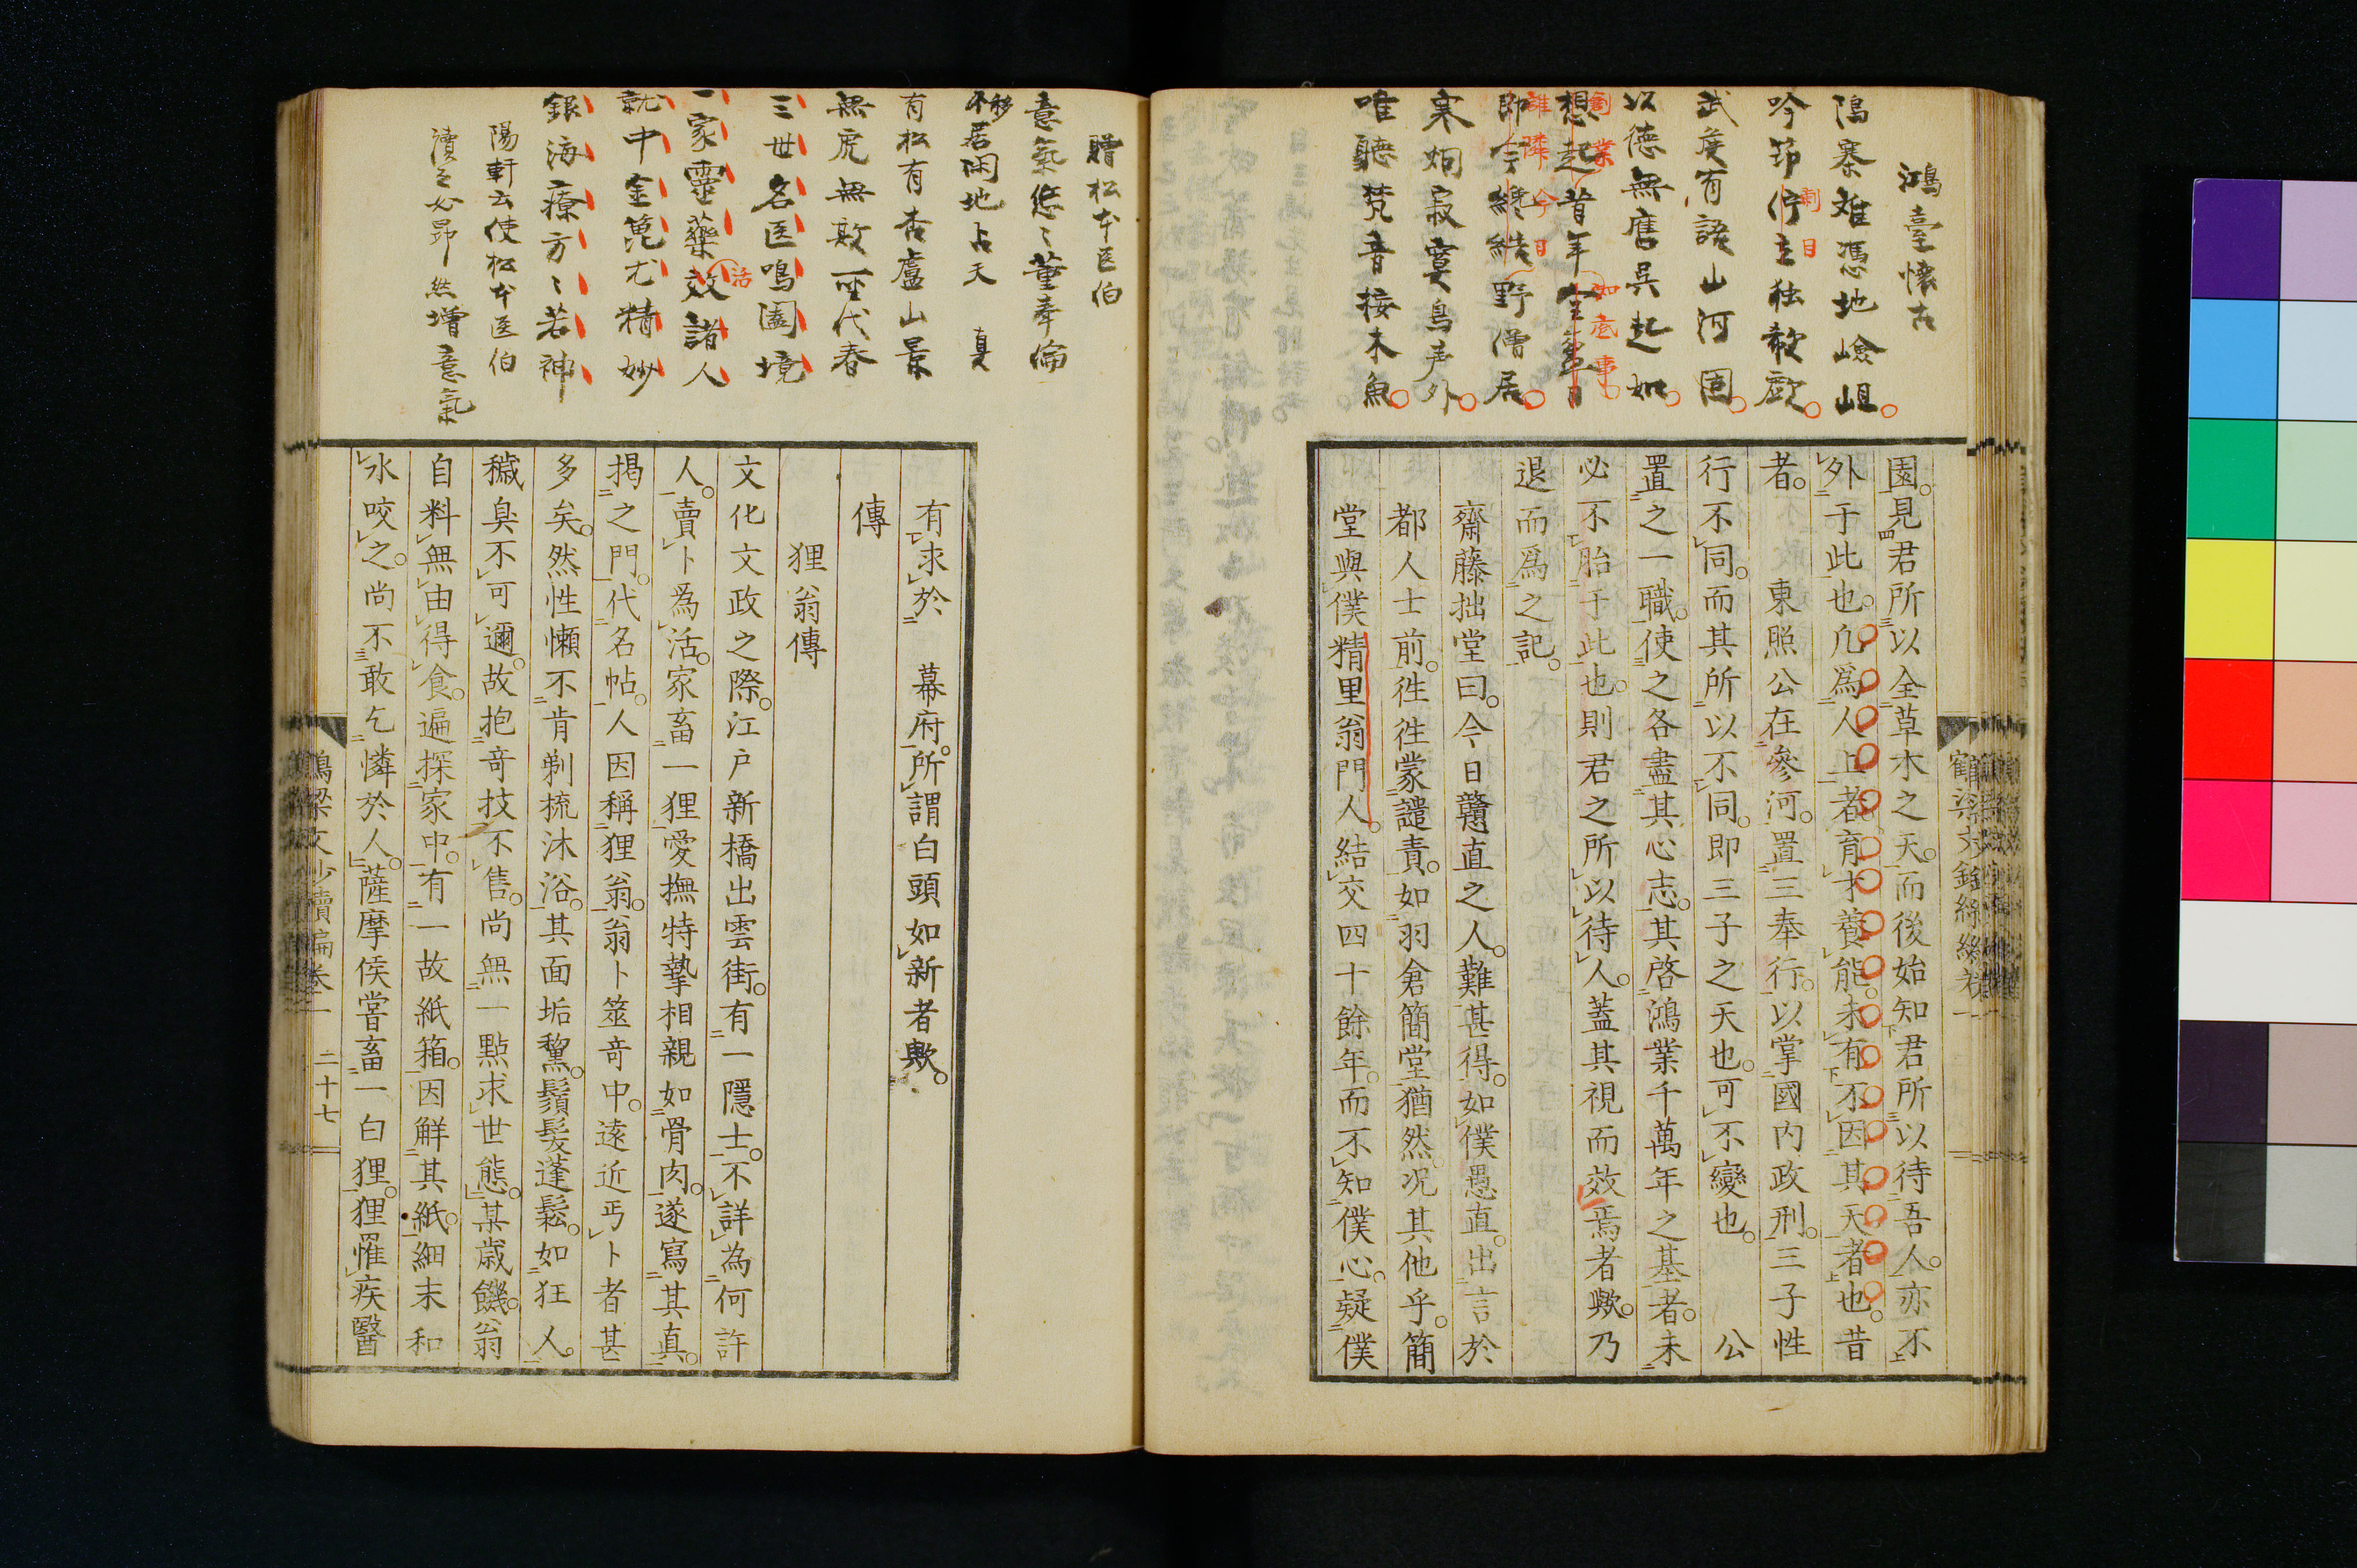 鴻臺懷古
隖寨難憑地嶮岨
吟笻佇立独歎歔
剰目
武侯有談山河固
以德無舊呉起如
想起昔年
創業
如底事
野僧居
誰隣今日
寂寞鳥声外
唯聽梵音接木魚
園見君所以全草木之天而後始知君所以待吾人亦不
外于此也凡爲人上者育才養能未有不因其天者也昔
者東照公在參河置三奉行以掌國内政刑三子性
行不同而其所以不同即三子之天也可不變也公
置之一職使之各盡其心志其啓鴻業千萬年之基者未
必不胎于此也則君之所以待人蓋其視而效焉者歟乃
退而爲之記
齋藤拙堂曰今日戇直之人難甚得如僕愚直出言於
都人士前徃徃蒙譴責如羽倉簡堂猶然况其他乎簡
堂與僕精里翁門人結交四十餘年而不知僕心疑僕
贈松本医伯
意氣悠〻董奉倫
不移居閑地占天真
有松有杏盧山景
無虎無欺一代春
三世名医鳴闔境
一家靈藥效諸人
活
就中金篦尤精妙
銀海療方〻若神
陽軒云使松本医伯
讀之必昂然增意氣
有求於幕府所謂白頭如新者歟
傳
狸翁傳
文化文政之際江戸新橋出雲街有一隱士不詳為何許
人賣卜爲活家畜一狸愛撫特摯相親如骨肉遂寫其真
掲之門代名帖人因稱狸翁翁卜筮奇中遠近丐卜者甚
多矣然性懶不肯剃梳沐浴其面垢黧鬚髪蓬鬆如狂人
穢臭不可邇故抱奇技不售尚無一點求世態某歳饑翁
自料無由得食遍探家中有一故紙箱因觧其紙細末和
水咬之尚不敢乞憐於人薩摩侯嘗畜一白狸狸罹疾醫
鶴梁文鈔續編卷一 二十七